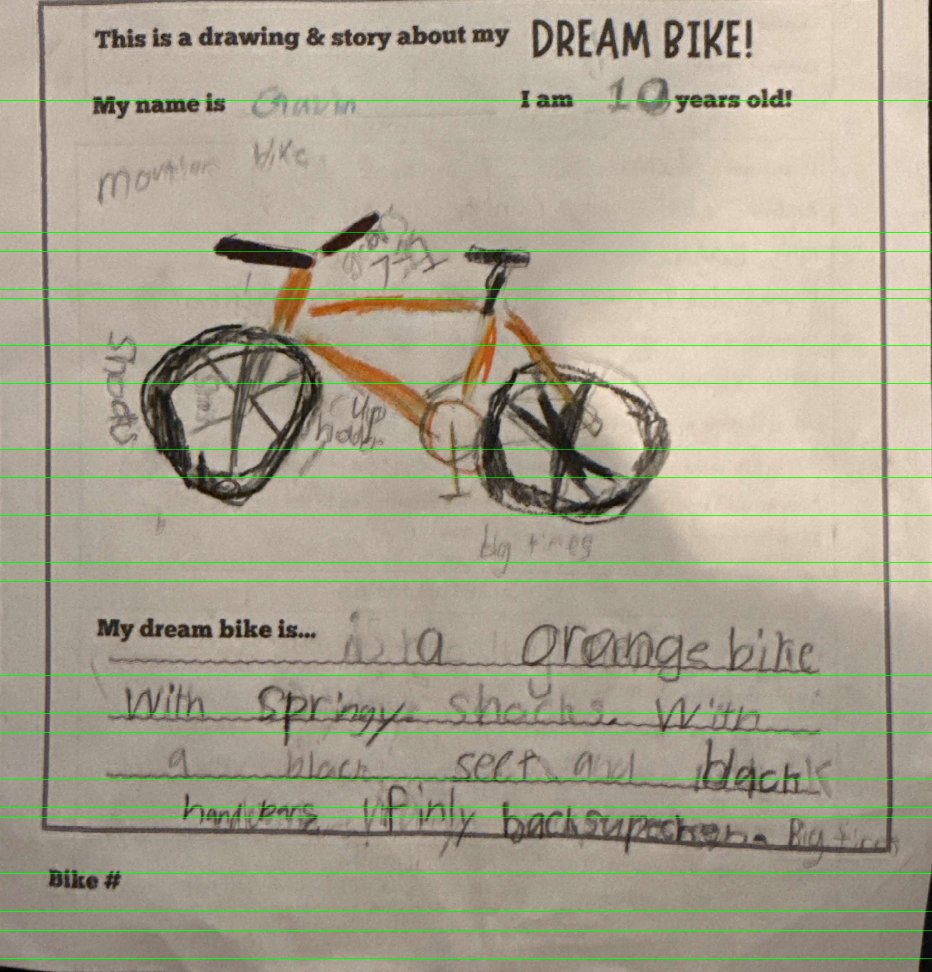 This is a drawing & story about my DREAM BIKE!
My name is Gavin I am 10 years old!
mountian bike
Shocks
big tires
My dream bike is... is a orange bike
With springy shocks. With
a black seet and black
handbars finly back
Big tires
Bike #